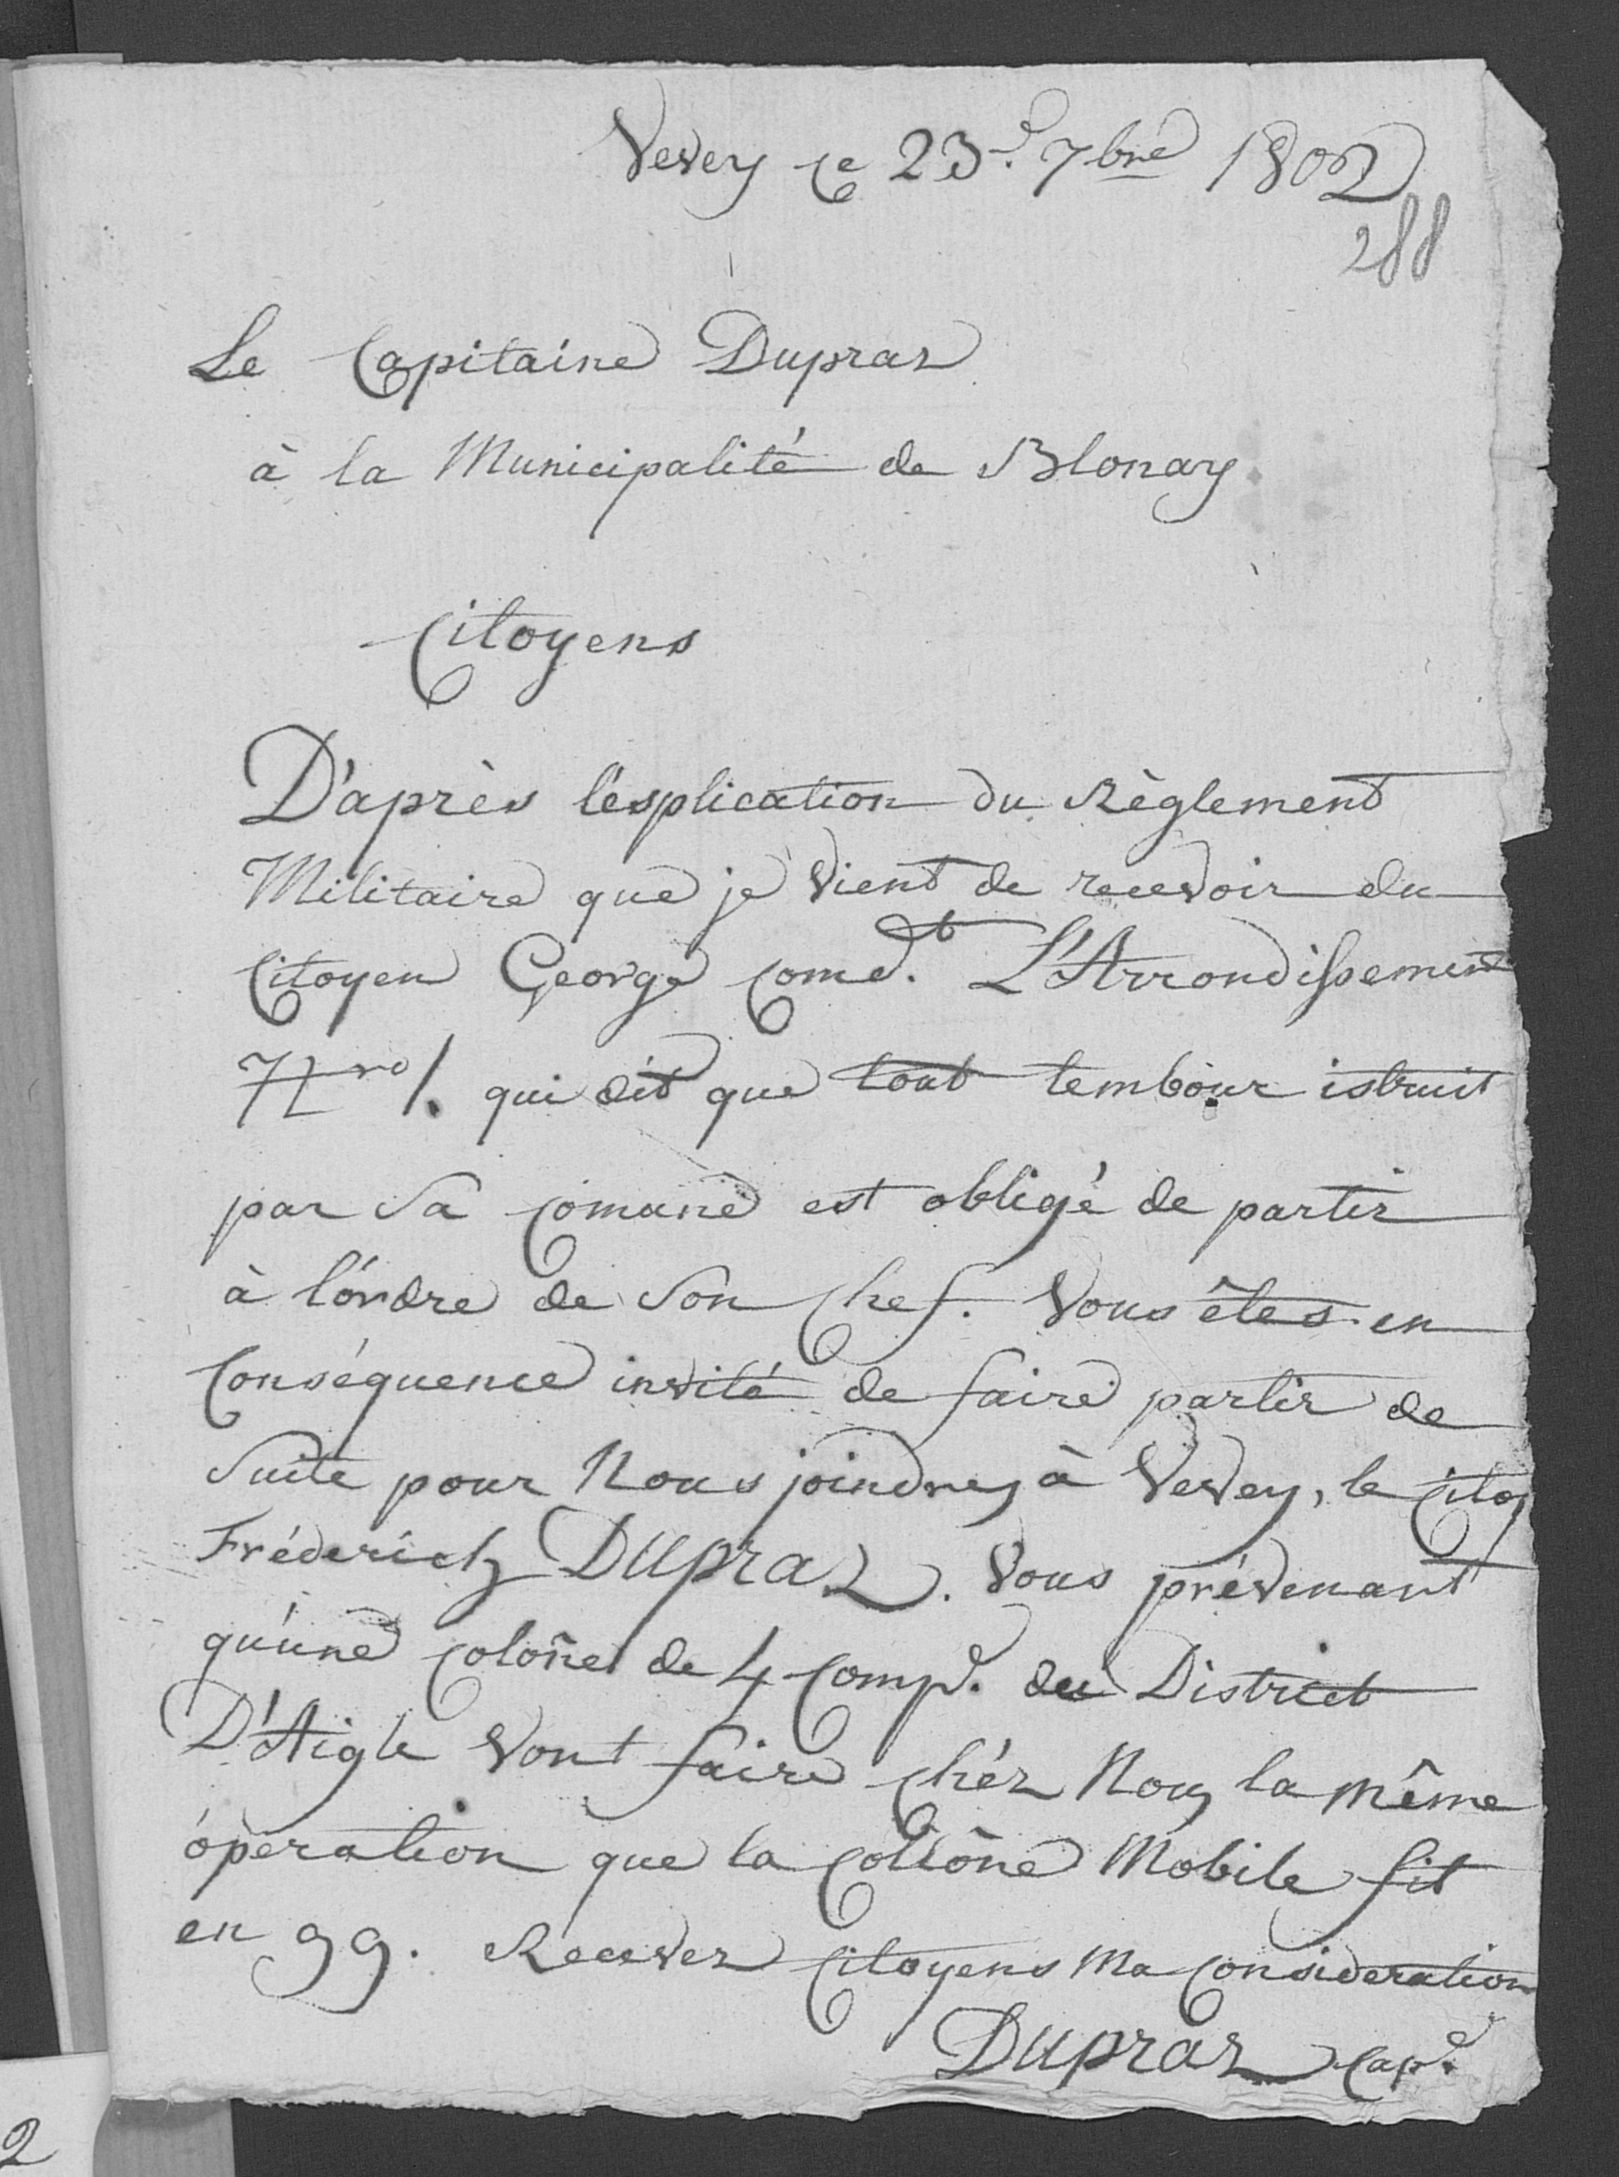 Vevey ce 23.e 7bre 1802
288
Le Capitaine Dupraz
à la Municipalité de Blonay
Citoyens
D'après l'ésplication du Règlement
Militaire que je vient de recevoir du
Citoyen George Comd.t L'Arrondissement
Nro 1. qui dit que tout tembour istruit
par sa Comune est obligé de partir
à l'órdre de son Chef. Vous êtes en
Conséquence invité de faire partir de
suite pour Nous joindre, à Vevey, le Citoy
Fréderich DUpraz. Vous prévenant
qu'úne Colone de 4 Comp.e du District
D'Aigle vont faire Chéz Nous la même
óperation que la Collône Mobile fit
en 99. Recevez Citoyens Ma Consideration
DUpraz Cap.e
2